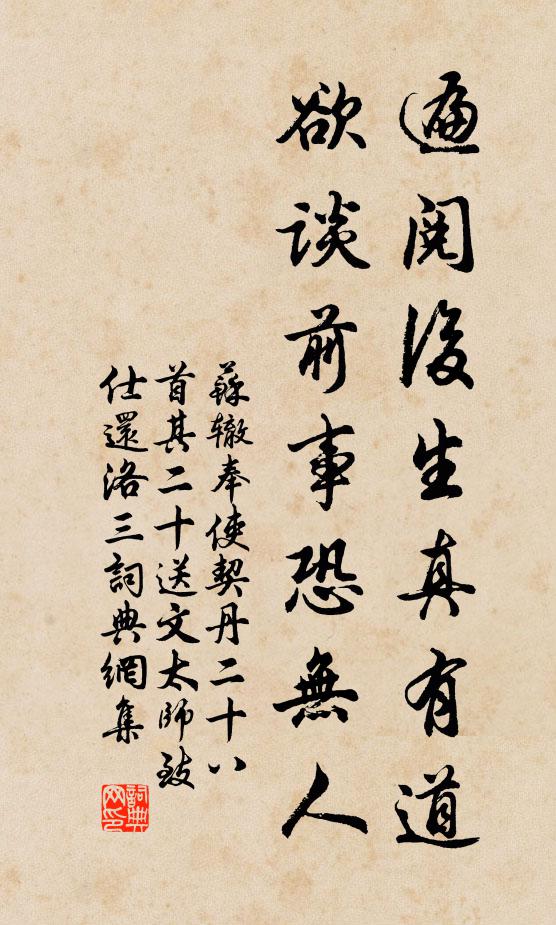 遍閱後生真有道
欲談前事恐無人
蘇轍奉使契丹二十八
首其二十送文太師致
仕還洛三詞典網集
詞典
网印